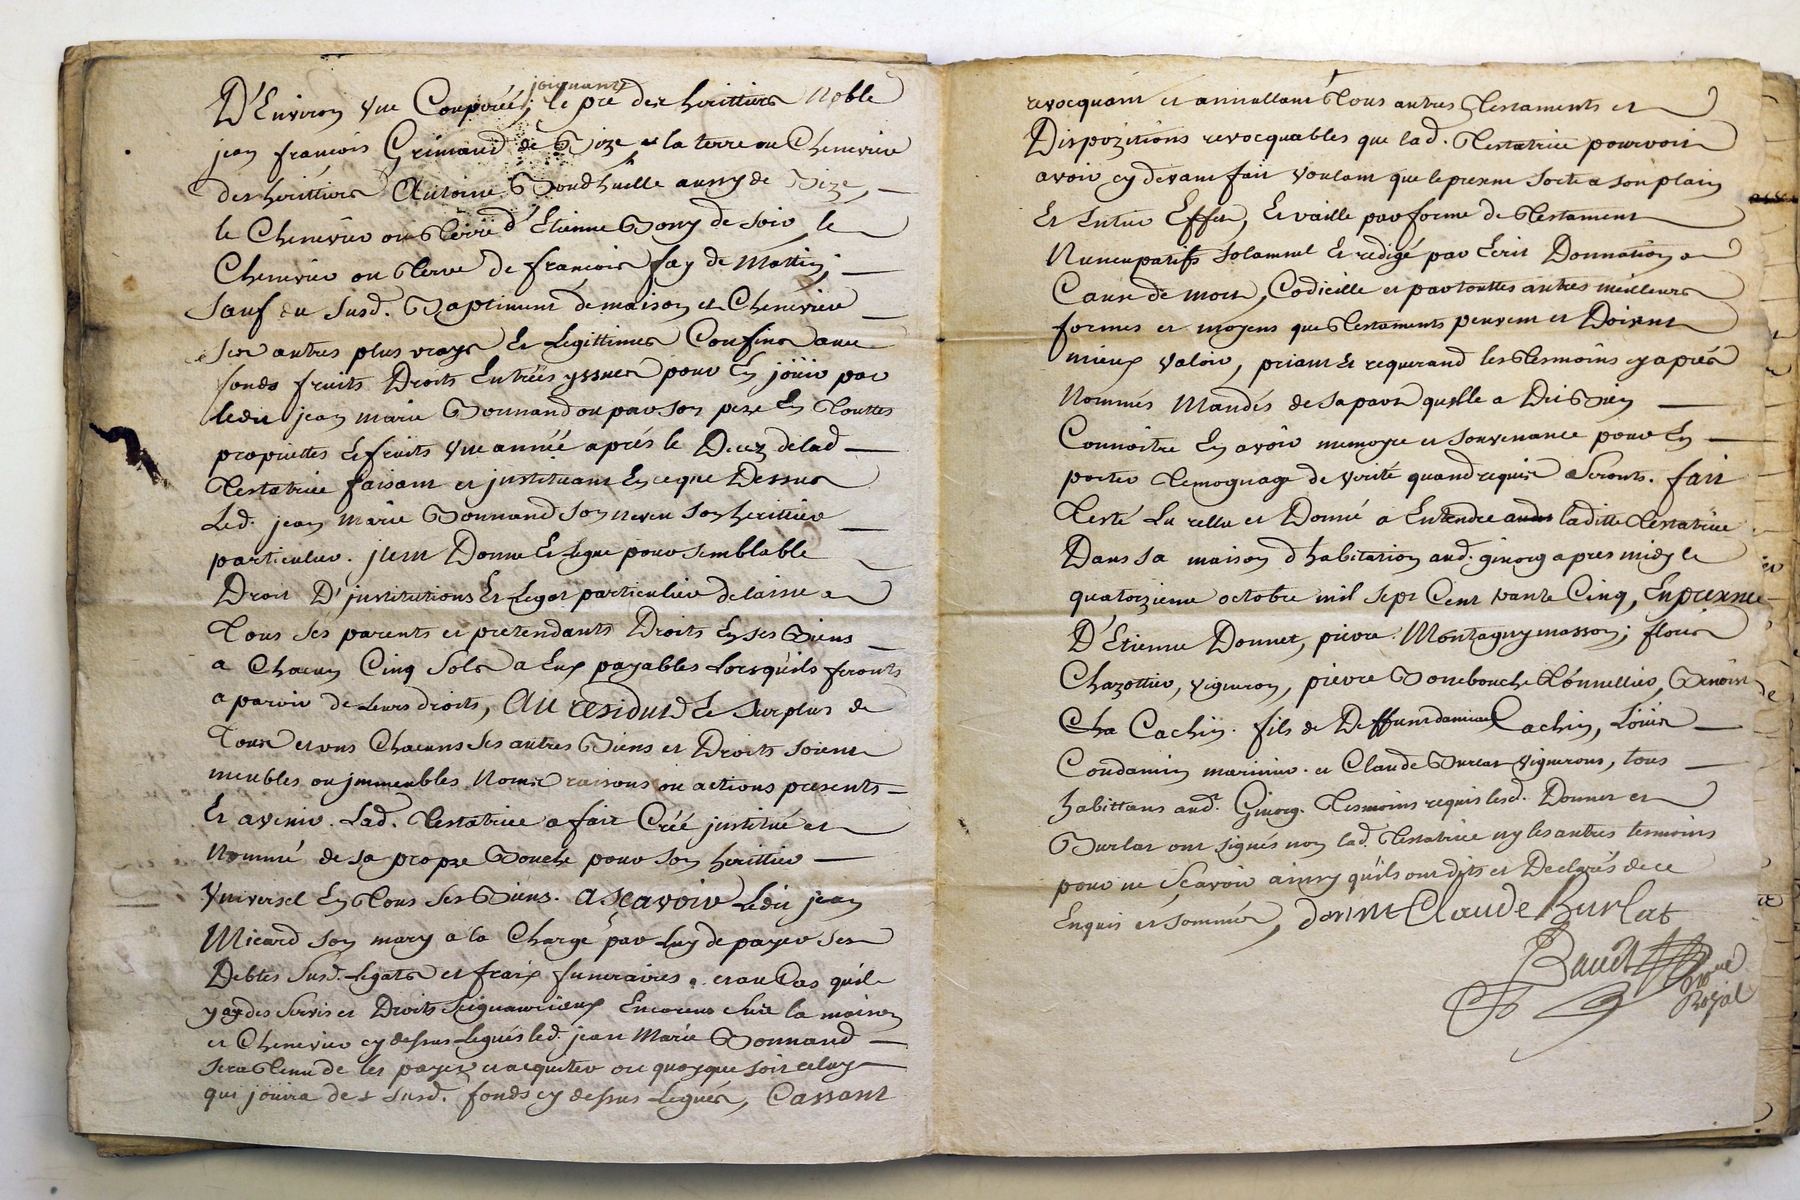 joignant
D'Environ Une Couppeé, le pre des heritiers Noble
jean francois Grimaud de Bize et la terre ou Chenevier
des heritiers Antoine aussy de Bize, —
le Chenevier ou Terre d'Etienne Bony de soir, le
Chenevier ou Terre de francois fay de Mattin, —
sauf du susd. Baptiment de maison et Chenevier —
ses autres plus vrays Et Legittimes Confins avec
fonds fruits Droits Entrées yssues pour En joüir par
ledit jean marie Bonnand ou par son pere En Touttes
proprietes et fruits Une année aprés le Decez de lad —
Testatrice faisant et instituant En ce que Dessus
Led. jean marie Bonnand son neveu son heritier —
particulier. jtem Donne Et Legue pour semblable
Droit D'institutions Et Legat particulier delaisse a
Tous ses parents et pretendants Droits En ses Biens —
a Chacun Cinq Sols a Eux payables Lorsquils feronts
aparoir de Leurs droits, Au residud Et surplus de
Tous et uns Chacuns ses autres Biens et Droits soient
meubles ou jmmeubles Noms raisons ou actions presents —
Et avenir. Lad. Testatrice a fait Créé jnstitué et
Nommé de sa propre Bouche pour son heritier —
Universel En Tous ses Biens. Asçavoir Ledit jean
Micard son mary a la Charge par Luy de payer ses
Debtes susd. Legats et fraix funeraires. et au Cas quil
y ay des servis et Droits seigneuriaux Encourus sur la maison
et Chenevier cy dessus Legués led. jean Marie Bonnand —
sera Tenu de les payer et acquiter ou quoyque soit celuy —
qui jouira des susd. fonds cy dessus Legués, Cassant
revocquant et annullant Tous autres Testaments et
Dispozitions revocquables que lad. Testatrice pourroit
avoir cy devant fait voulant que le present sorte a son plain
Et Entier Effet, Et vaille par forme de Testament
Nuncupatifs solamnel Et redigé par Ecrit Donnation a
Cause de mort, Codicille et par touttes autres meilleurs
formes et moyens que Testaments peuvent et Doivent
mieux valoir, priant et requerand les Tesmoins cy aprés
Nommés Mandés de sa part quelle a Dit Bien —
Connoitre En avoir memoyre et souvenance pour En —
porter Temognage de verité quand requis Seronts. fait
Testé Lu rellu et Donné a Entendre a laditte Testatrice
Dans sa maison d'habitation aud. ginorg apres midy le
quatorzieme octobre mil sept Cent trante Cinq, En presence —
D'Etienne Donnet, pierre Montagny masson; floris
Chazottier, vigneron, pierre Bonebouche Tonnellier, Benoist
Cha Cachin. fils de Deffunt damian Cachin, Loüis —
Condamin marinier. et Claude Burlat vignerons, tous —
habittans aud. Ginorg. Tesmoins requis lesd. Donnet et
Burlat ont signés non lad. Testatrice ny les autres temoins
pour ne Sçavoir ainsy quils ont dits et Declarés de ce
Enquis et sommés, donnet Claude Burlat
Baudt
Royal